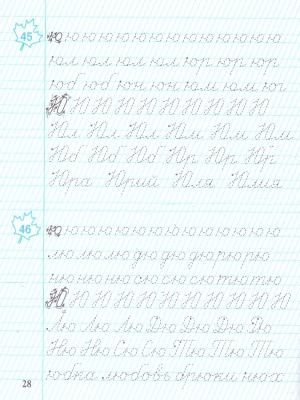 45
ю ю ю ю ю ю ю ю ю ю ю ю ю ю
юл юл юл юл юр юр юр
юб юб юн юн юм юм юг
Ю Ю Ю Ю Ю Ю Ю Ю Ю Ю
Юл Юл Юл Юм Юм Юм
Юб Юб Юб Юр Юр Юр
Юра Юрий Юля Юлия
46
ю ю ю ю ю ю ю ю ю ю ю ю ю ю
лю лю лю дю дю дю рю рю
ню ню ню сю сю сю тю тю
Ю Ю Ю Ю Ю Ю Ю Ю Ю Ю Ю
Лю Лю Лю Дю Дю Дю Дю
Ню Ню Сю Сю Тю Тю Тю
юбка любовь брюки нюх
28